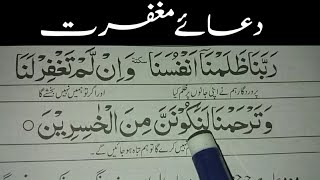 دعائے مغفرت
رَبَّنَا ظَلَمْنَا اَنْفُسَنَا وَاِنْ لَّمْ تَغْفِرْ لَنَا
پروردگار ہم نے اپنی جانوں پر ظلم کیا اور اگر تو ہمیں نہیں بخشے گا
وَتَرْحَمْنَا لَنَكُوْنَنَّ مِنَ الْخٰسِرِيْنَ
نہیں کرے گا تو ہم تباہ ہو جائیں گے۔